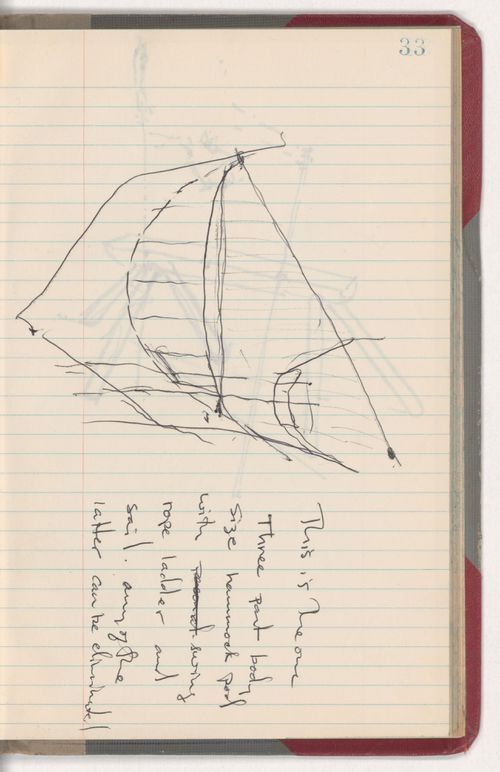 33
This is the one
Three part body
size hammock pod
with swing
rope ladder and
sail. any of the
latter can be eliminated